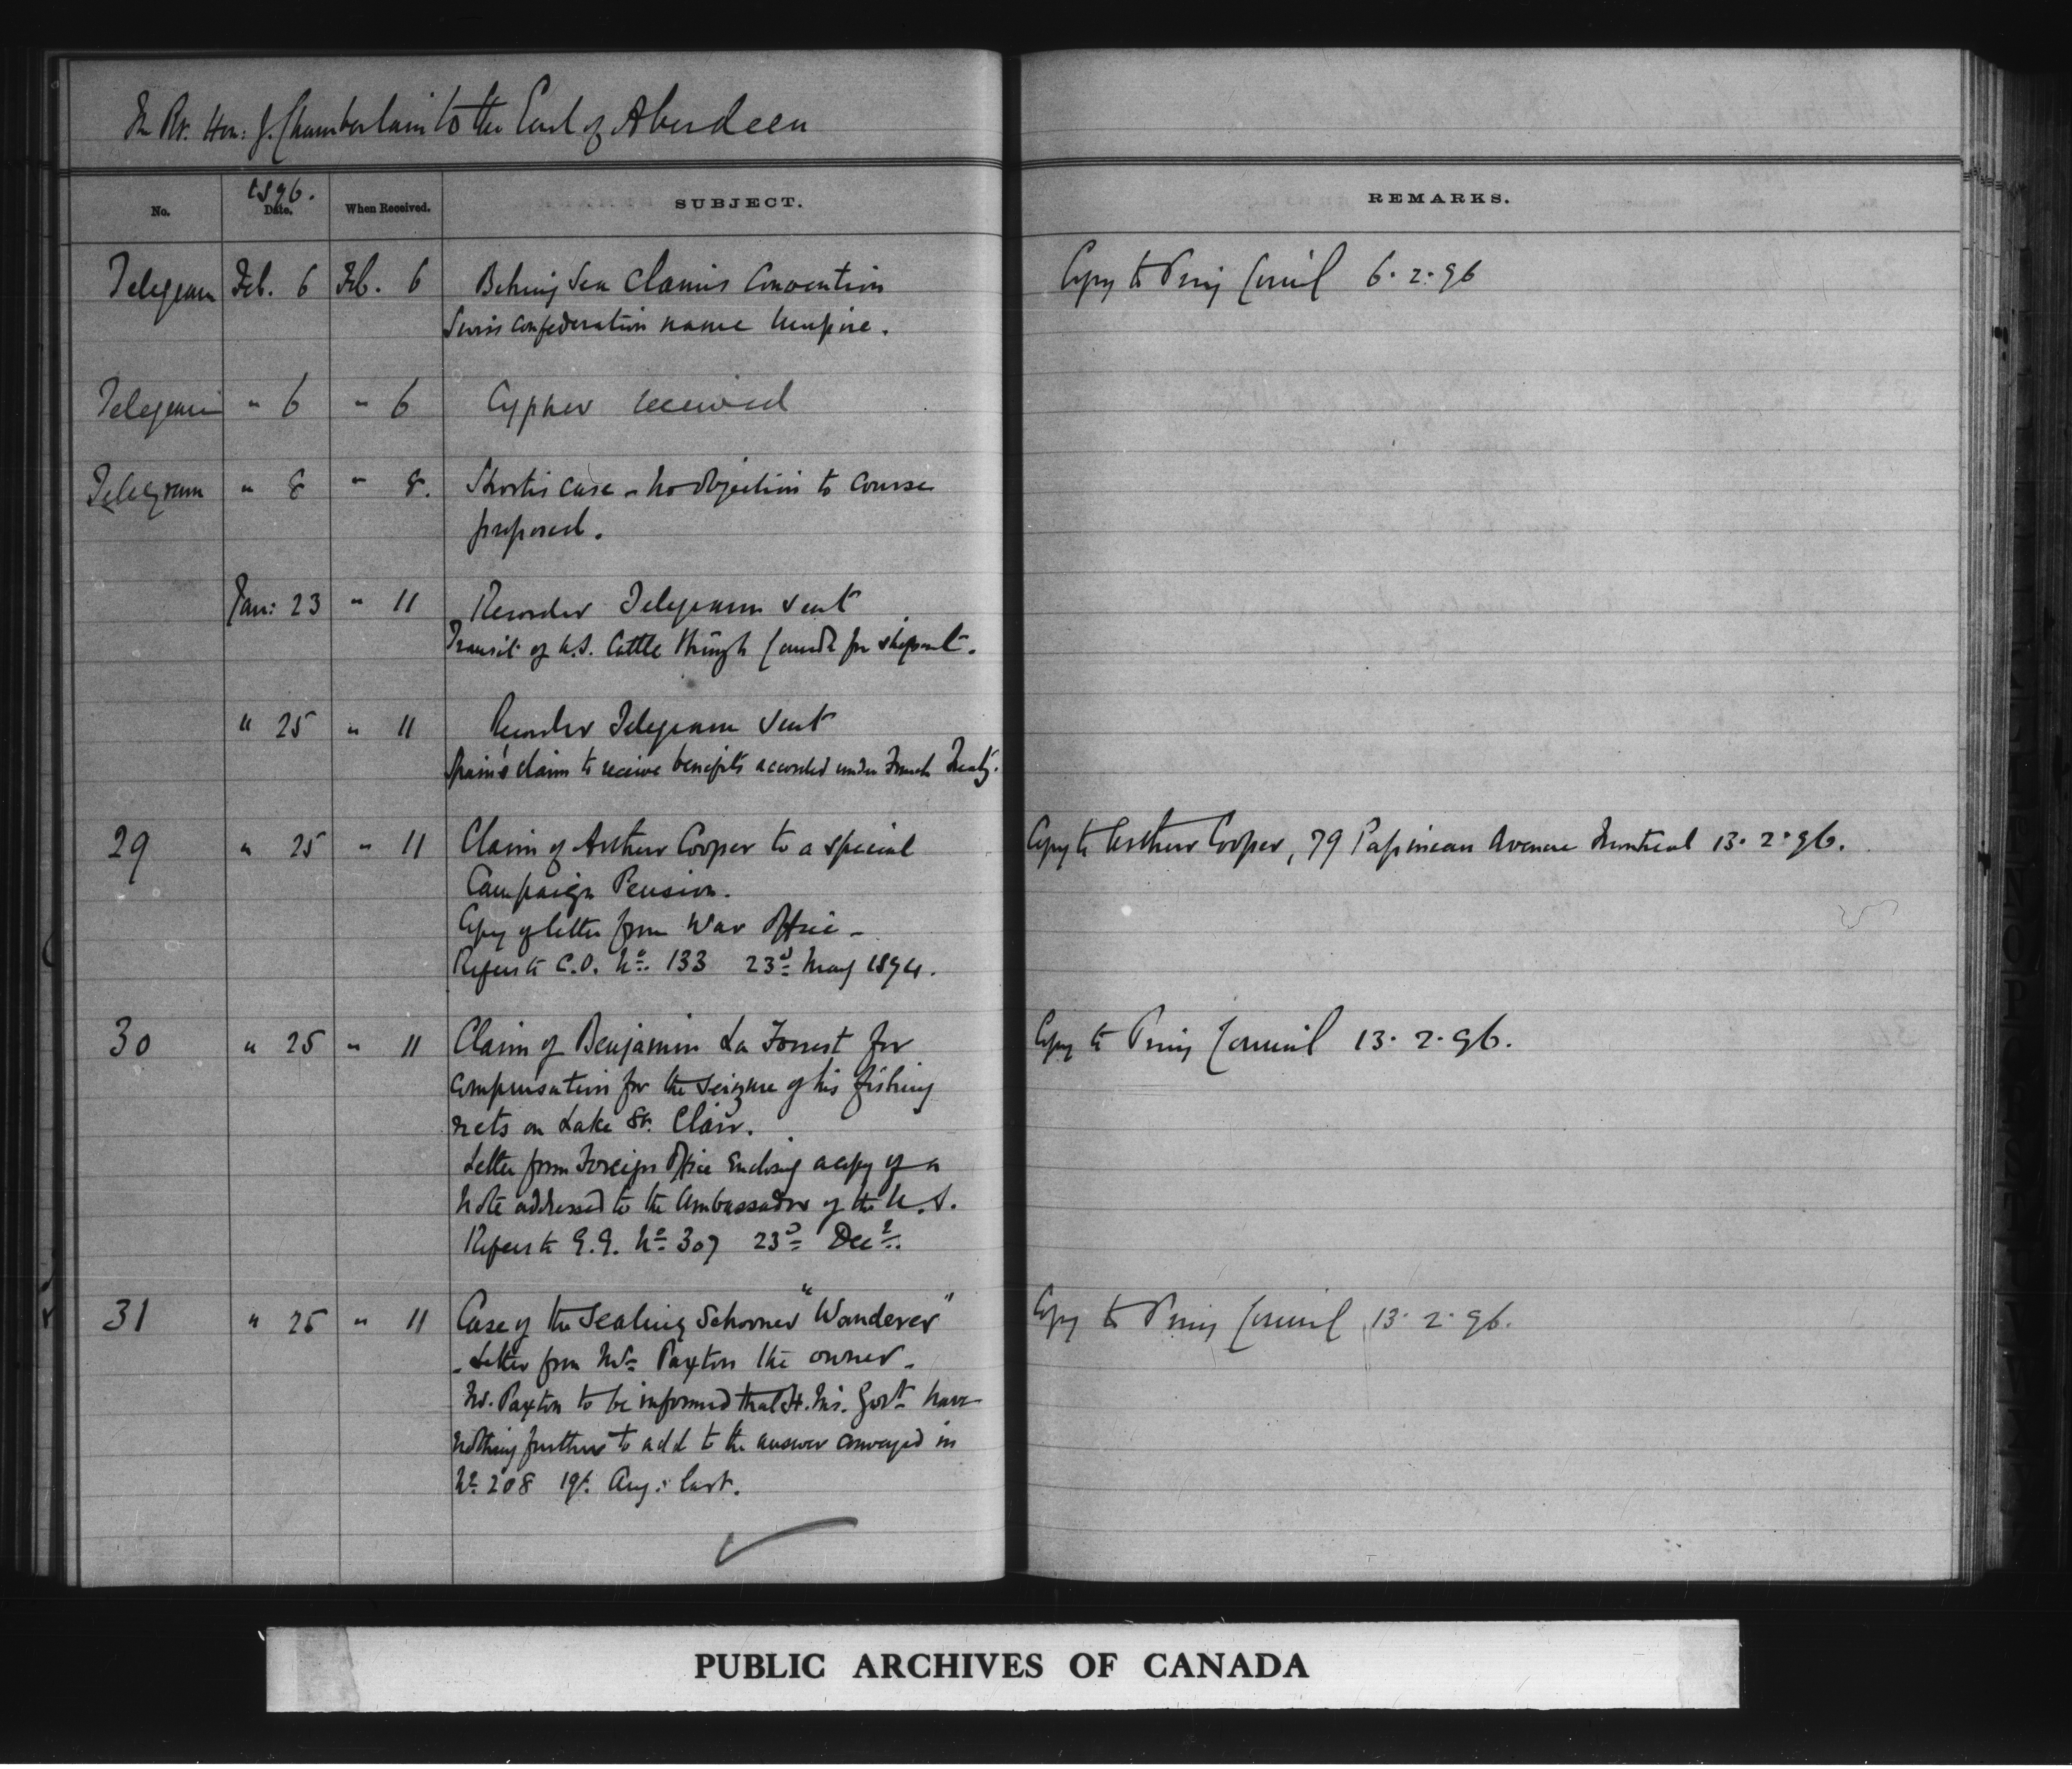 The Rt. Hon: J. Chamberlain to the Earl of Aberdeen
No. 1896. Date. When Received. SUBJECT. REMARKS.
Telegram Feb. 6 Feb. 6 Behring Sea Claims Convention Copy to Privy Council 6.2.96
Swiss Confederation name Umpire.
Telegram " 6 " 6 Cypher received
Telegram " 8 " 8. Shortis case - no objection to course
proposed.
Jan: 23 " 11 Recorder Telegram sent
Transit of U.S. Cattle through Canada for shipment.
" 25 " 11 Recorder Telegram sent
Spain's claim to receive benefits accorded under French Treaty.
29 " 25 " 11 Claim of Arthur Cooper to a special Copy to Arthur Cooper, 79 Papineau Avenue Montreal 13.2.96.
Campaign Pension.
Copy of letter from War Office -
Refers to C.O. No. 133 23d May 1894.
30 " 25 " 11 Claim of Benjamin La Forrest for Copy to Privy Council 13.2.96.
compensation for the seizure of his fishing
nets on Lake St. Clair.
Letter from Foreign Office enclosing a copy of a
Note addressed to the Ambassador of the U.S.
Refers to G.G. No. 307 23d Decr.
31 " 25 " 11 Case of the Sealing Schooner "Wanderer" Copy to Privy Council 13.2.96.
- Letter from Mr. Paxton the owner -
Mr. Paxton to be informed that H.M's. Govt. have
nothing further to add to the answer conveyed in
No. 208 19t. Aug: last.
PUBLIC ARCHIVES OF CANADA